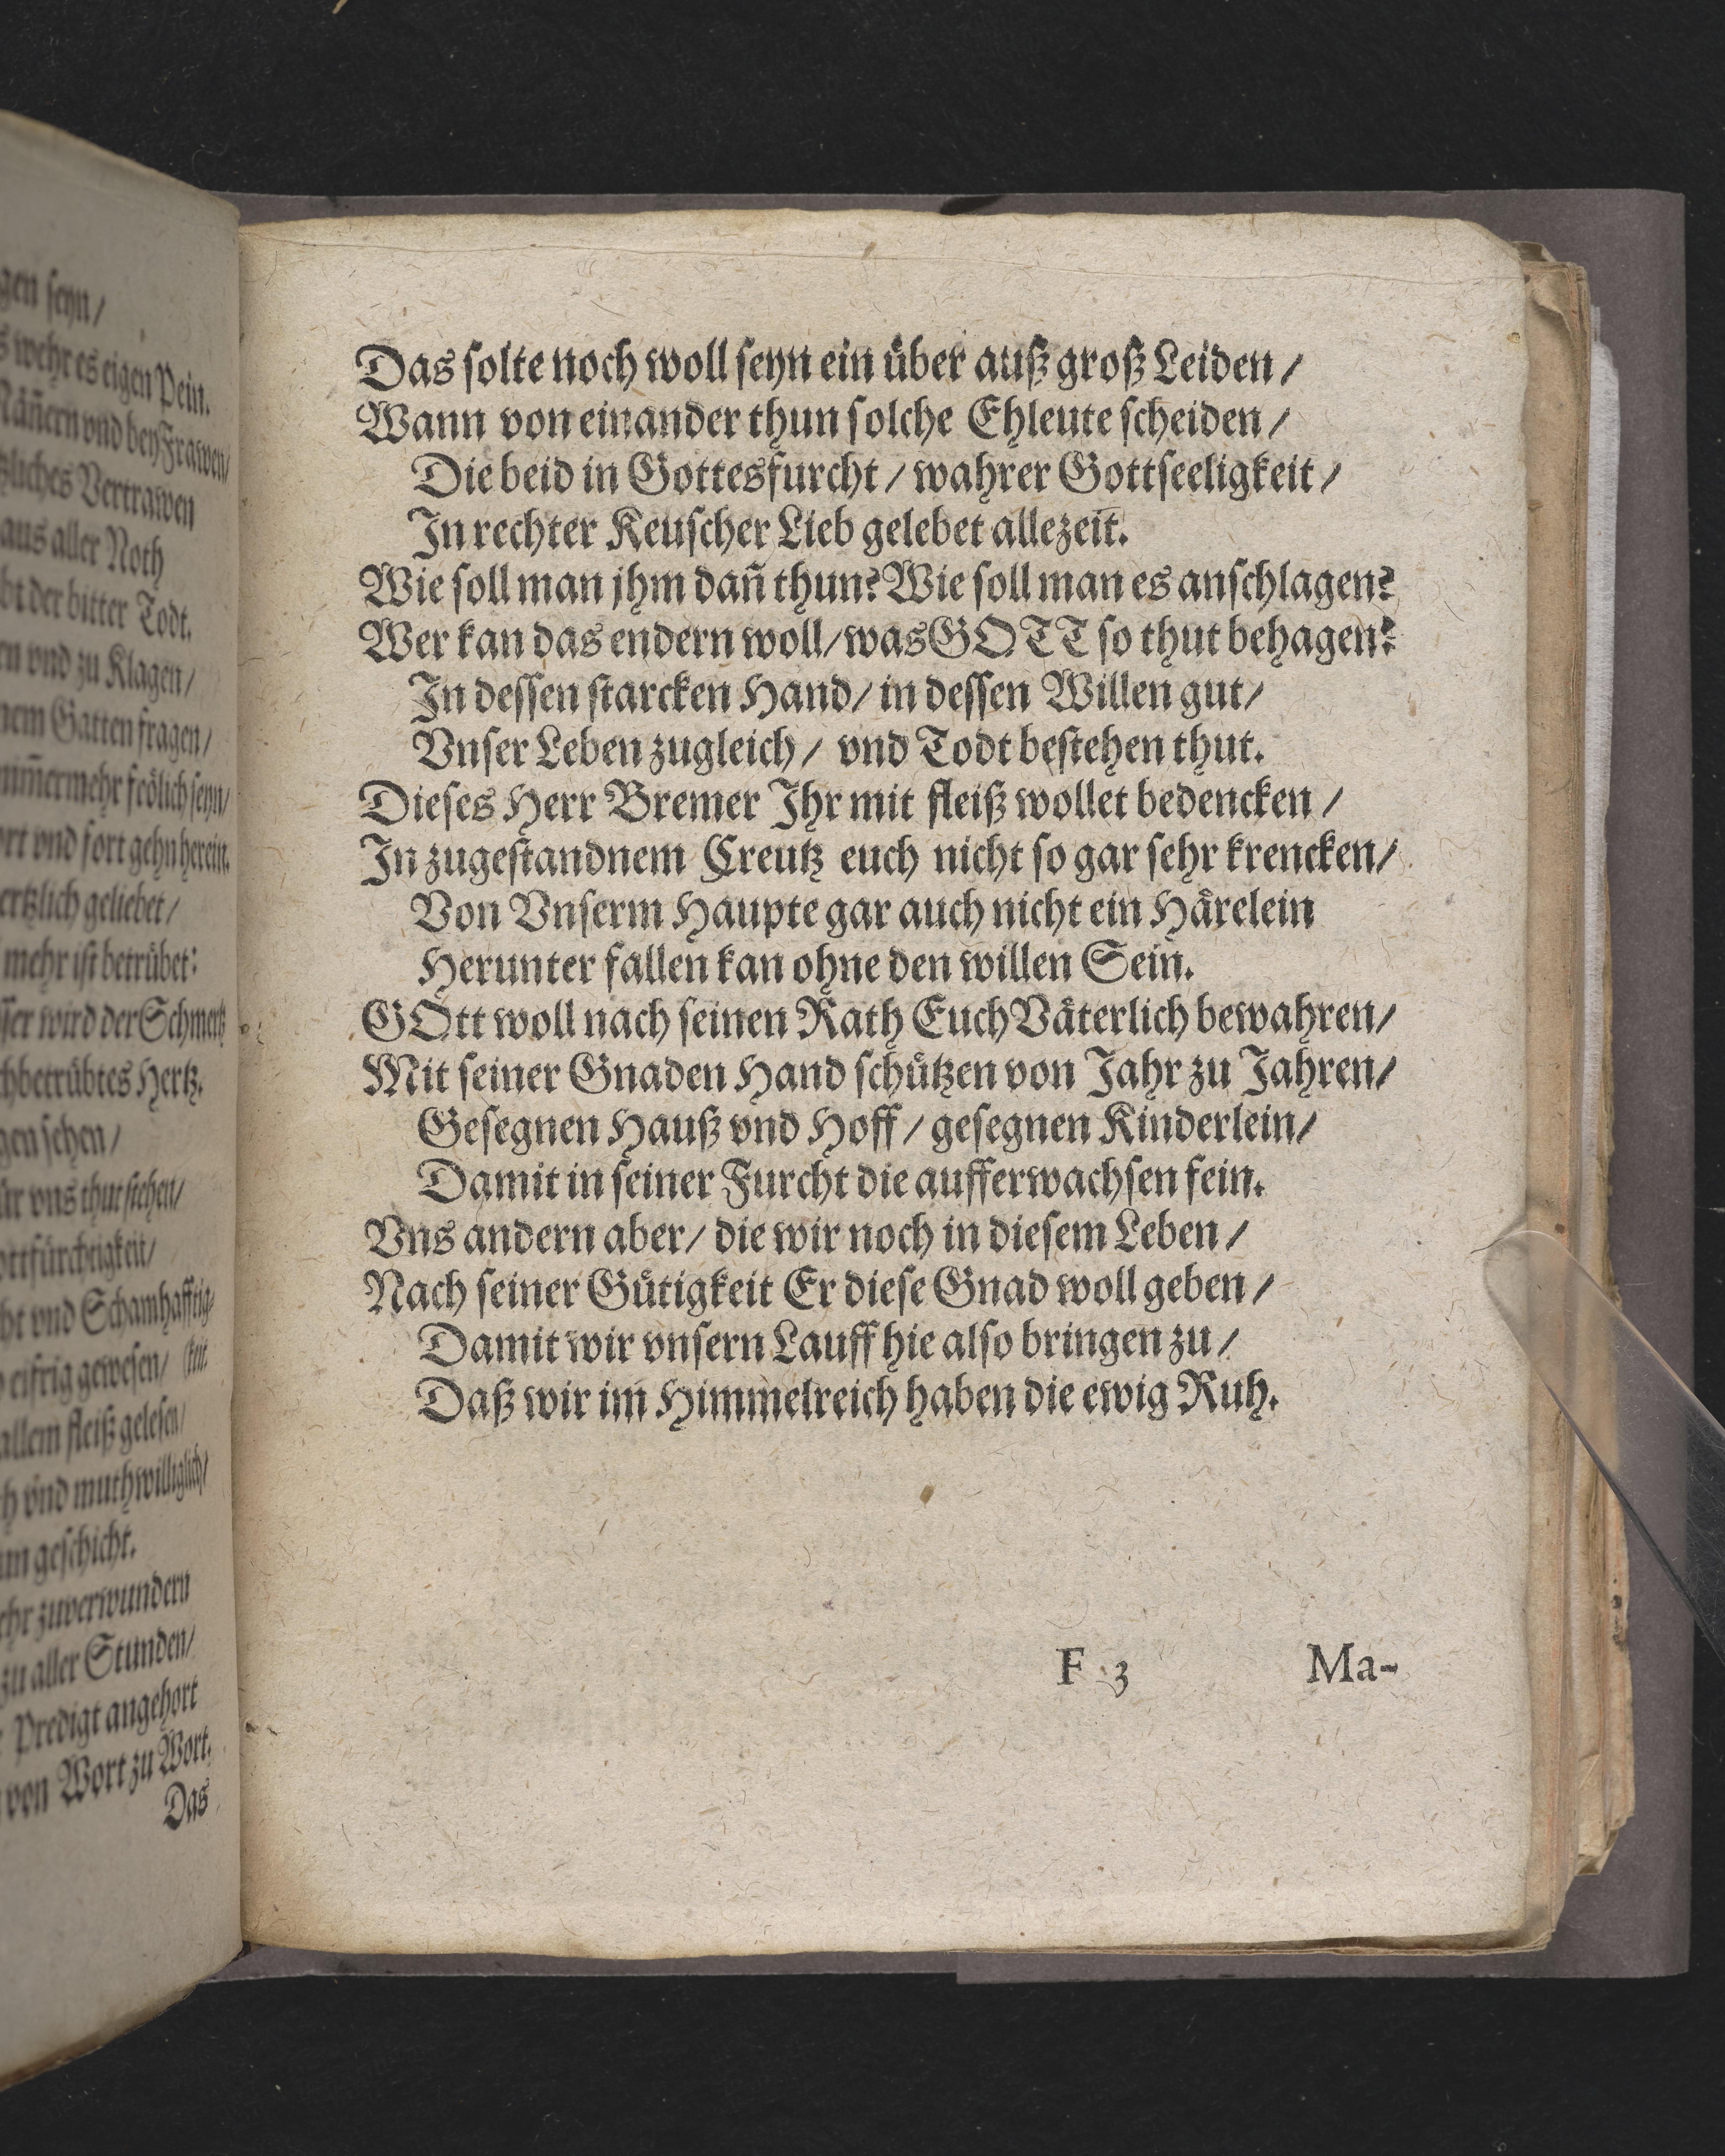 gen seyn/
wehr es eigen Pein.
Mañern vnd bey Frawen/
liches Vertrawen
aus aller Noth
bt der bitter Todt.
en vnd zu Klagen/
nem Gatten fragen/
mm̃ermehr frölich seyn/
ort vnd fort gehn herein.
ertzlich geliebet/
mehr ist betrübet:
sser wird der Schmertz
chbetrübtes Hertz.
gen sehen/
ür vns thut stehen/
ottfürchtigkeit/
cht vnd Schamhafftig-
eifrig gewesen/ (keit.
allem fleiß gelesen/
ch vnd muthwilliglich/
geschicht.
ehr zuverwundern
zu aller Stunden/
Predigt angehort
von Wort zu Wort.
Das
Das solte noch woll seyn ein über auß groß Leiden/
Wann von einander thun solche Ehleute scheiden/
Die beid in Gottesfurcht/ wahrer Gottseeligkeit/
In rechter Keuscher Lieb gelebet allezeit.
Wie soll man jhm dañ thun? Wie soll man es anschlagen?
Wer kan das endern woll/ was GOTT so thut behagen?
In dessen starcken Hand/ in dessen Willen gut/
Vnser Leben zugleich/ vnd Todt bestehen thut.
Dieses Herr Bremer Ihr mit fleiß wollet bedencken/
In zugestandnem Creutz euch nicht so gar sehr krencken/
Von Vnserm Haupte gar auch nicht ein Härelein
Herunter fallen kan ohne den willen Sein.
GOtt woll nach seinen Rath Euch Väterlich bewahren/
Mit seiner Gnaden Hand schützen von Jahr zu Jahren/
Gesegnen Hauß vnd Hoff/ gesegnen Kinderlein/
Damit in seiner Furcht die aufferwachsen fein.
Vns andern aber/ die wir noch in diesem Leben/
Nach seiner Gütigkeit Er diese Gnad woll geben/
Damit wir vnsern Lauff hie also bringen zu/
Daß wir im Himmelreich haben die ewig Ruh.
F 3 Ma-